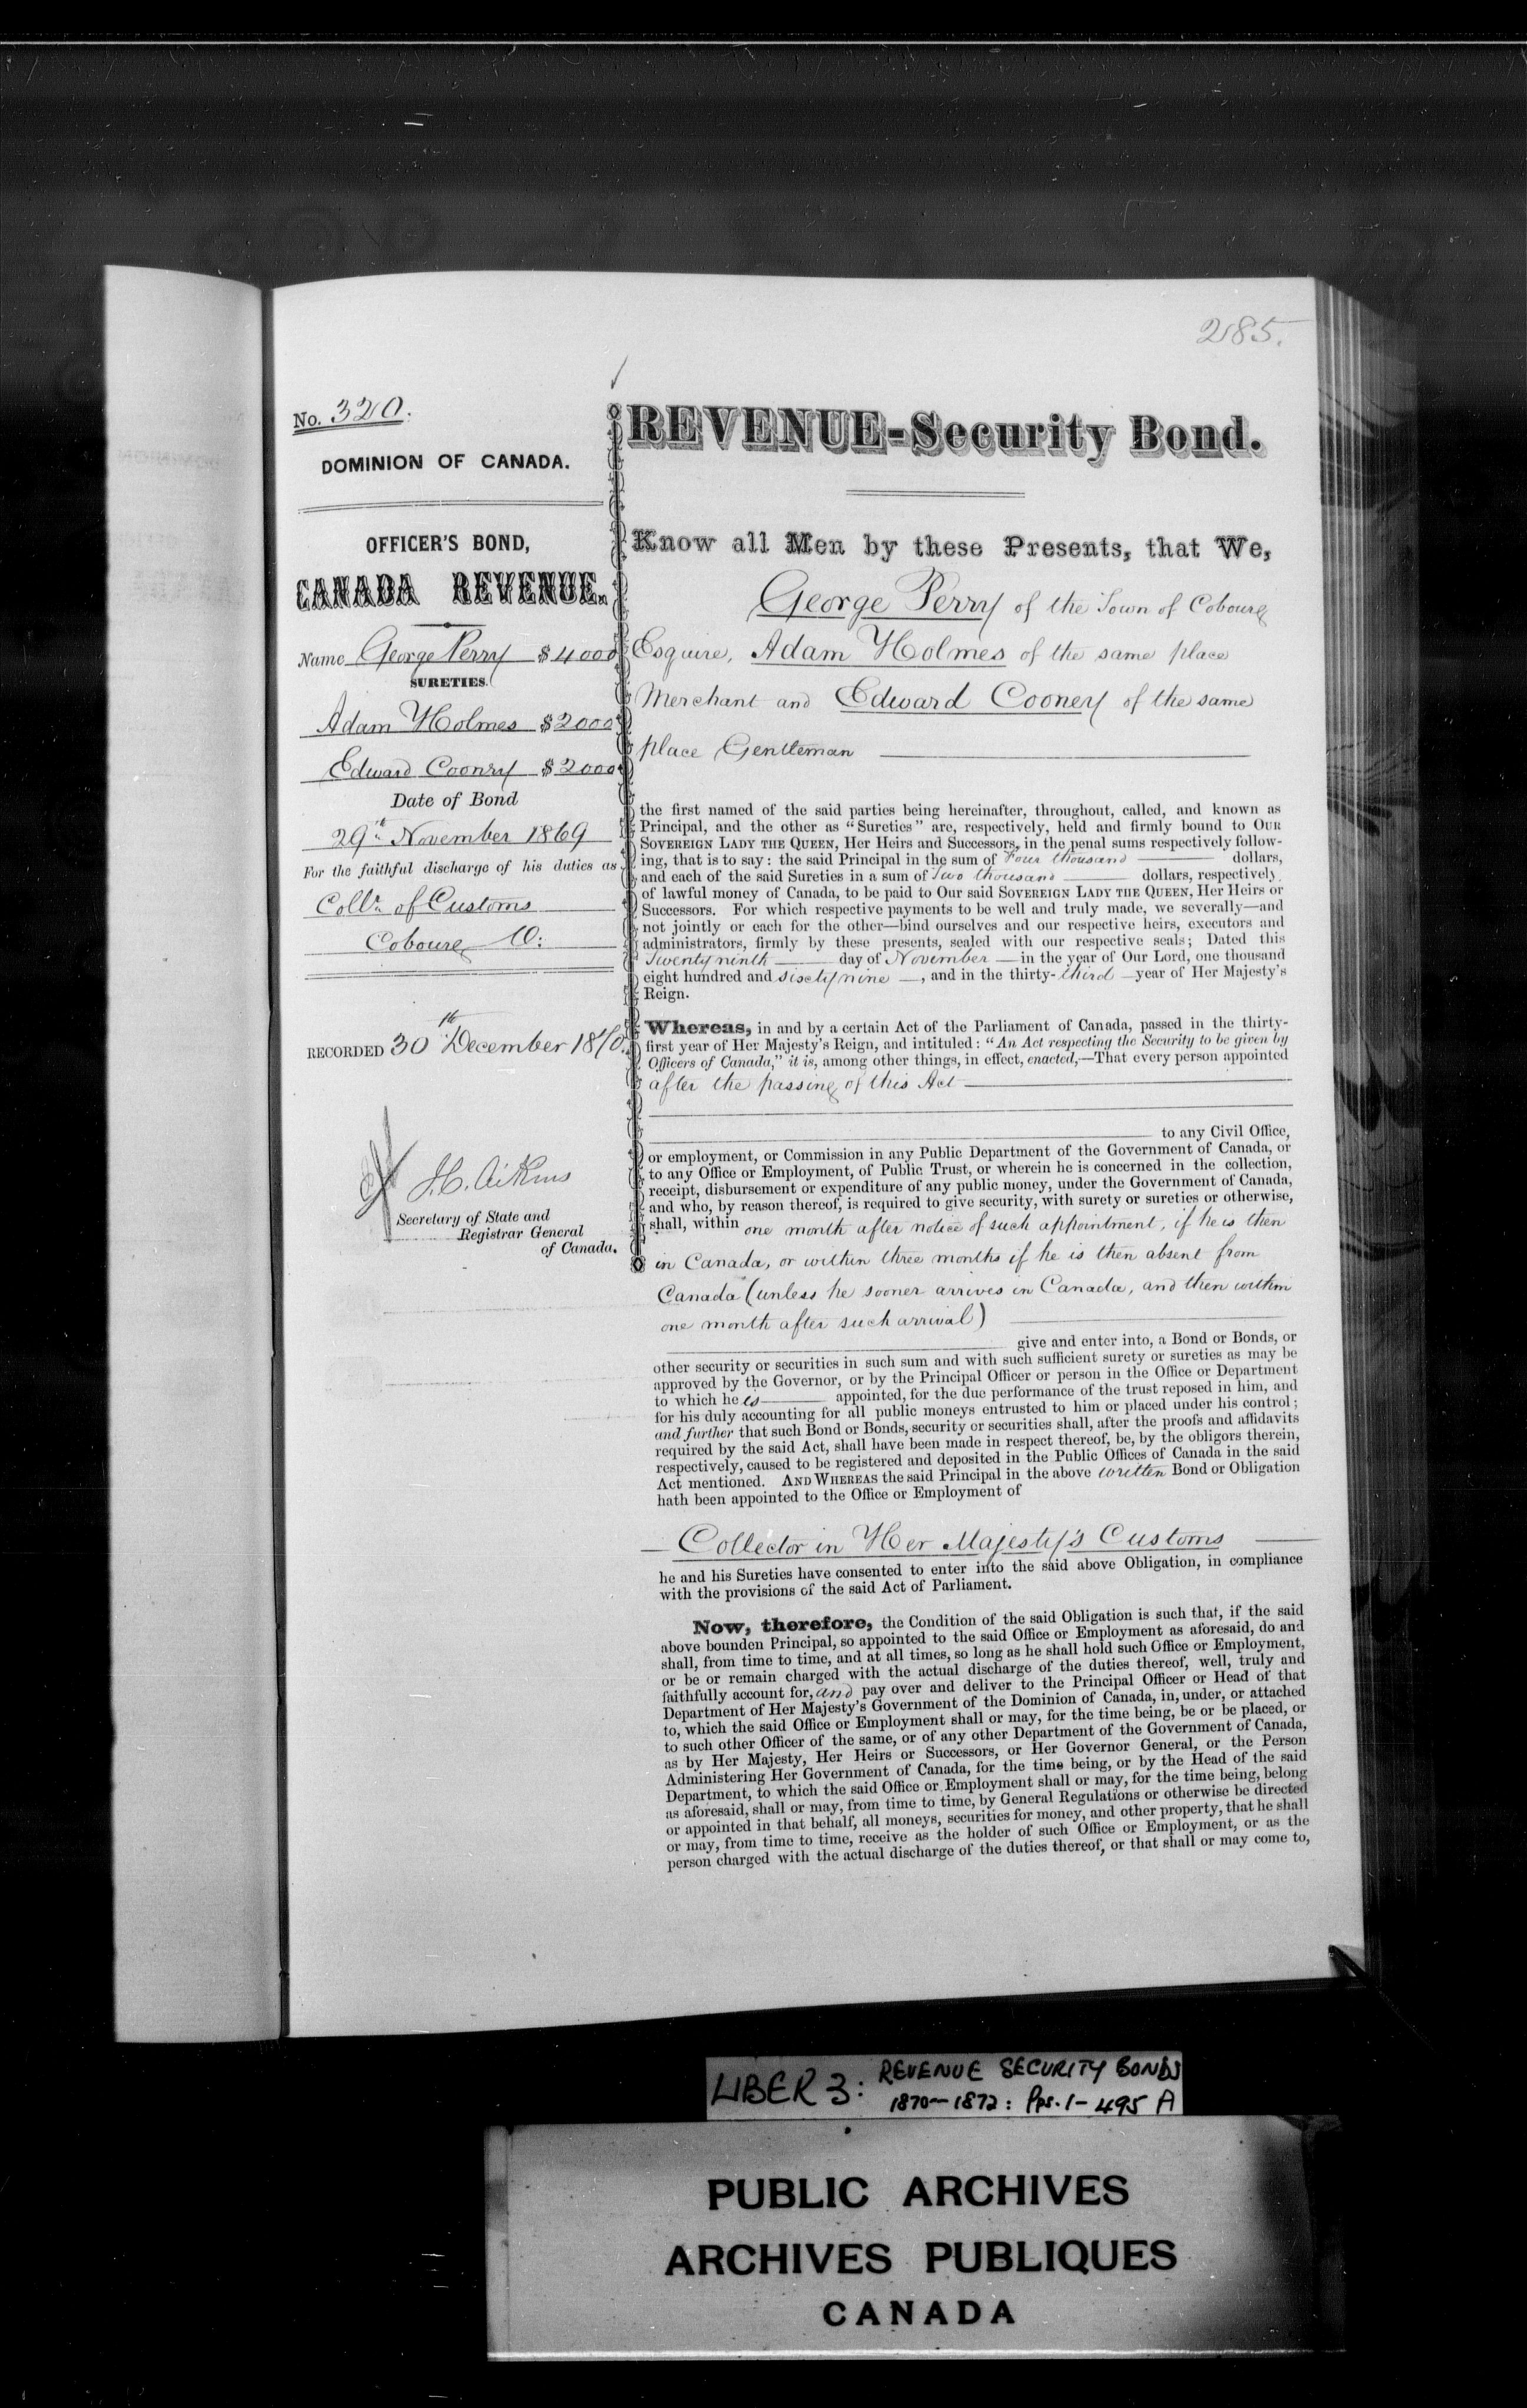 285.
No. 320.
DOMINION OF CANADA.
OFFICER'S BOND,
CANADA REVENUE.
Name George Perry $4000
SURETIES.
Adam Holmes $2000
Edward Cooney $2000
Date of Bond
29th November 1869
For the faithful discharge of his duties as
Collr of Customs
Cobourg O:
RECORDED 30th December 1870.
J.C. Aikins
Secretary of State and
Registrar General
of Canada.
REVENUE-Security Bond.
Know all Men by these Presents, that We,
George Perry of the Town of Cobourg
Esquire, Adam Holmes of the same place
Merchant and Edward Cooney of the same
place Gentleman
the first named of the said parties being hereinafter, throughout, called, and known as
Principal, and the other as "Sureties" are, respectively, held and firmly bound to OUR
SOVEREIGN LADY THE QUEEN, Her Heirs and Successors, in the penal sums respectively follow-
ing, that is to say: the said Principal in the sum of Four thousand dollars,
and each of the said Sureties in a sum of Two thousand dollars, respectively
of lawful money of Canada, to be paid to Our said SOVEREIGN LADY THE QUEEN, Her Heirs or
Successors. For which respective payments to be well and truly made, we severally—and
not jointly or each for the other—bind ourselves and our respective heirs, executors and
administrators, firmly by these presents, sealed with our respective seals; Dated this
Twenty ninth day of November in the year of Our Lord, one thousand
eight hundred and sixty nine, and in the thirty-third year of Her Majesty's
Reign.
Whereas, in and by a certain Act of the Parliament of Canada, passed in the thirty-
first year of Her Majesty's Reign, and intituled: "An Act respecting the Security to be given by
Officers of Canada," it is, among other things, in effect, enacted,—That every person appointed
after the passing of this Act
to any Civil Office,
or employment, or Commission in any Public Department of the Government of Canada, or
to any Office or Employment, of Public Trust, or wherein he is concerned in the collection,
receipt, disbursement or expenditure of any public money, under the Government of Canada,
and who, by reason thereof, is required to give security, with surety or sureties or otherwise,
shall, within one month after notice of such appointment, if he is then
in Canada, or within three months if he is then absent from
Canada (unless he sooner arrives in Canada, and then within
one month after such arrival)
give and enter into, a Bond or Bonds, or
other security or securities in such sum and with such sufficient surety or sureties as may be
approved by the Governor, or by the Principal Officer or person in the Office or Department
to which he is appointed, for the due performance of the trust reposed in him, and
for his duly accounting for all public moneys entrusted to him or placed under his control;
and further that such Bond or Bonds, security or securities shall, after the proofs and affidavits
required by the said Act, shall have been made in respect thereof, be, by the obligors therein,
respectively, caused to be registered and deposited in the Public Offices of Canada in the said
Act mentioned. AND WHEREAS the said Principal in the above written Bond or Obligation
hath been appointed to the Office or Employment of
Collector in Her Majesty's Customs
he and his Sureties have consented to enter into the said above Obligation, in compliance
with the provisions of the said Act of Parliament.
Now, therefore, the Condition of the said Obligation is such that, if the said
above bounden Principal, so appointed to the said Office or Employment as aforesaid, do and
shall, from time to time, and at all times, so long as he shall hold such Office or Employment,
or be or remain charged with the actual discharge of the duties thereof, well, truly and
faithfully account for, and pay over and deliver to the Principal Officer or Head of that
Department of Her Majesty's Government of the Dominion of Canada, in, under, or attached
to, which the said Office or Employment shall or may, for the time being, be or be placed, or
to such other Officer of the same, or of any other Department of the Government of Canada,
as by Her Majesty, Her Heirs or Successors, or Her Governor General, or the Person
Administering Her Government of Canada, for the time being, or by the Head of the said
Department, to which the said Office or Employment shall or may, for the time being, belong
as aforesaid, shall or may, from time to time, by General Regulations or otherwise be directed
or appointed in that behalf, all moneys, securities for money, and other property, that he shall
or may, from time to time, receive as the holder of such Office or Employment, or as the
person charged with the actual discharge of the duties thereof, or that shall or may come to,
LIBER 3: REVENUE SECURITY BONDS
1870-1872: Pps. 1-495 A
PUBLIC ARCHIVES
ARCHIVES PUBLIQUES
CANADA